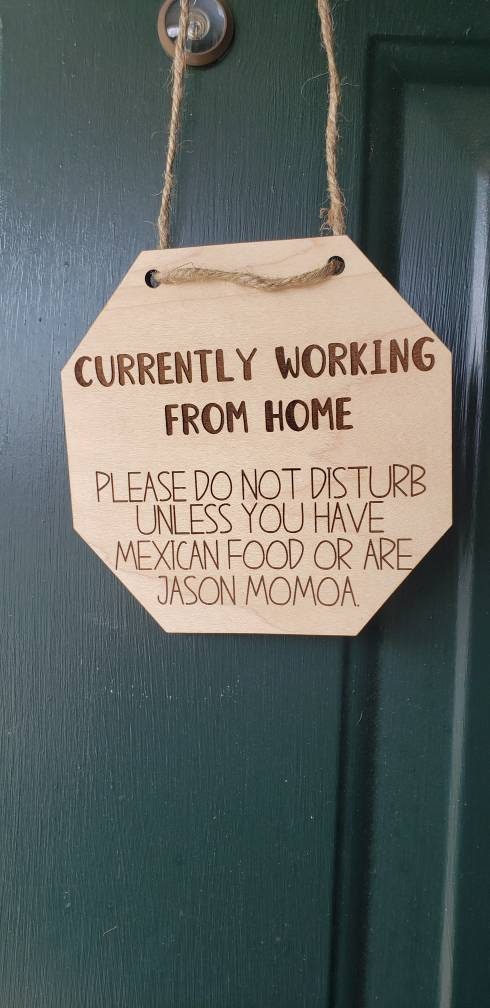 CURRENTLY WORKING
FROM HOME
PLEASE DO NOT DISTURB
UNLESS YOU HAVE
MEXICAN FOOD OR ARE
JASON MOMOA.